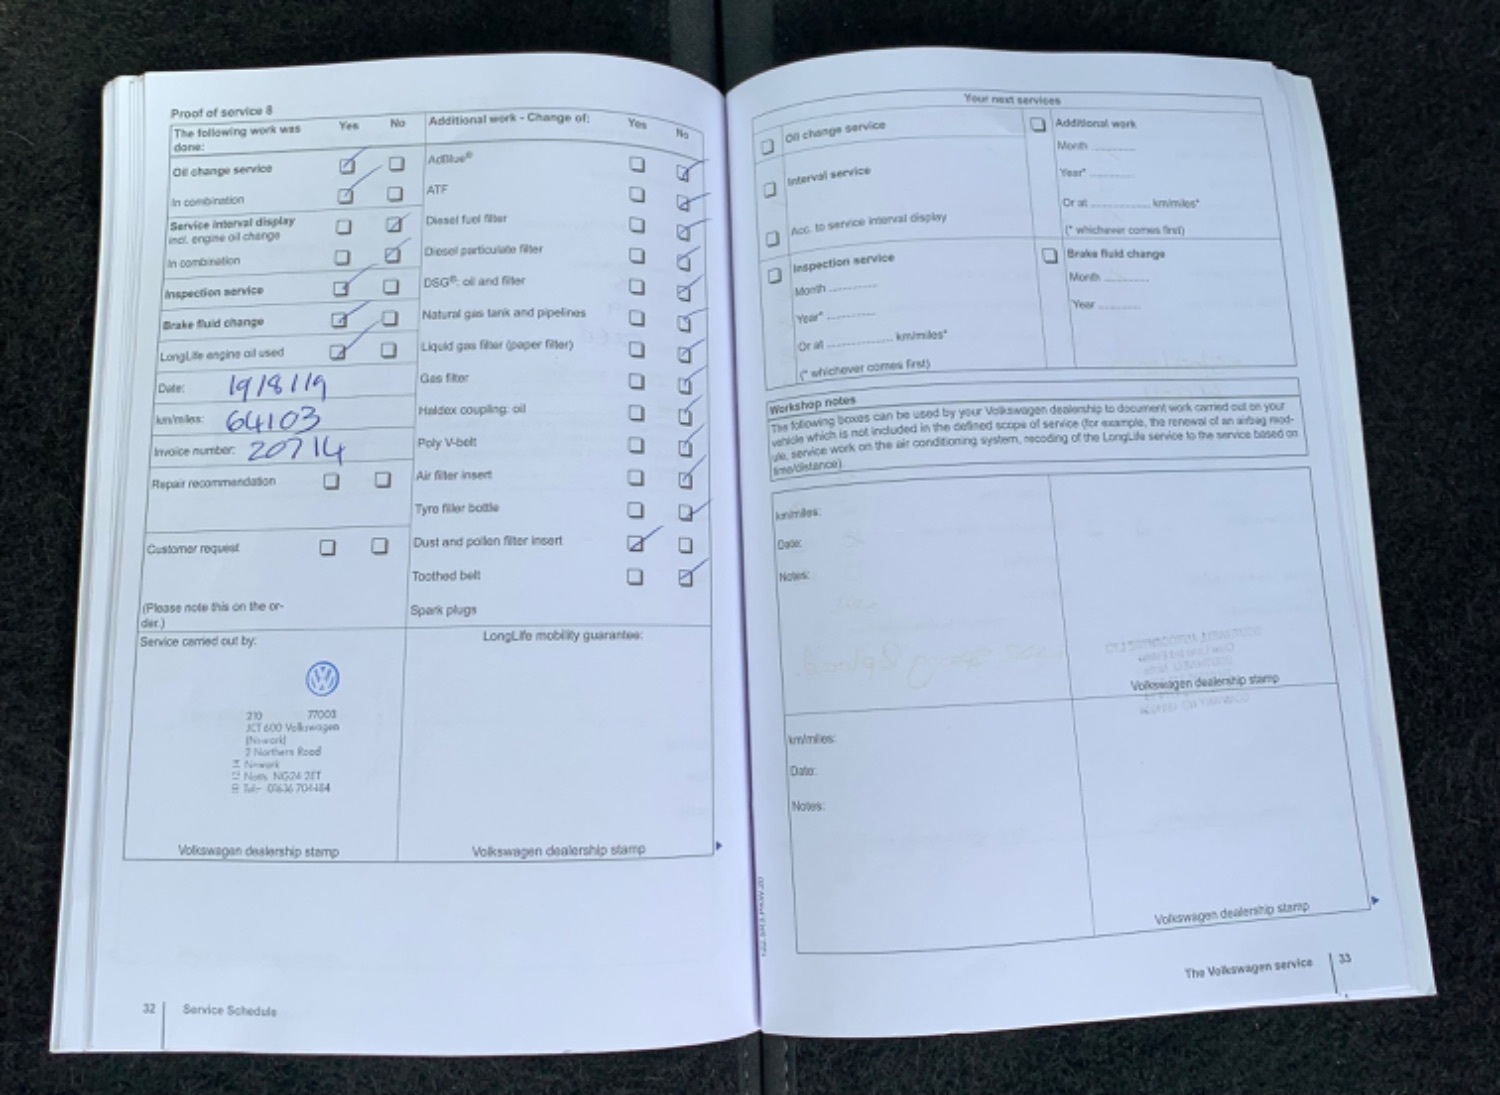 Proof of service 8
The following work was done: Yes No
Oil change service
In combination
Service interval display
incl. engine oil change
In combination
Inspection service
Brake fluid change
LongLife engine oil used
Date: 19/8/19
km/miles: 64103
Invoice number: 20714
Repair recommendation
Customer request
(Please note this on the or-
der.)
Additional work - Change of: Yes No
AdBlue®
ATF
Diesel fuel filter
Diesel particulate filter
DSG®: oil and filter
Natural gas tank and pipelines
Liquid gas filter (paper filter)
Gas filter
Haldex coupling: oil
Poly V-belt
Air filter insert
Tyre filler bottle
Dust and pollen filter insert
Toothed belt
Spark plugs
Service carried out by:
210 77003
JCT 600 Volkswagen
(Newark)
2 Northern Road
Newark
Notts NG24 2ET
Tel:- 01636 704484
Volkswagen dealership stamp
LongLife mobility guarantee:
Volkswagen dealership stamp
32 Service Schedule
Your next services
Oil change service
Interval service
Acc. to service interval display
Inspection service
Month ............
Year* ............
Or at ................ km/miles*
(* whichever comes first)
Additional work
Month ...........
Year* ...........
Or at ............... km/miles*
(* whichever comes first)
Brake fluid change
Month ...........
Year ...........
Workshop notes
The following boxes can be used by your Volkswagen dealership to document work carried out on your
vehicle which is not included in the defined scope of service (for example, the renewal of an airbag mod-
ule, service work on the air conditioning system, recoding of the LongLife service to the service based on
time/distance)
km/miles:
Date:
Notes:
Volkswagen dealership stamp
km/miles:
Date:
Notes:
Volkswagen dealership stamp
The Volkswagen service 33